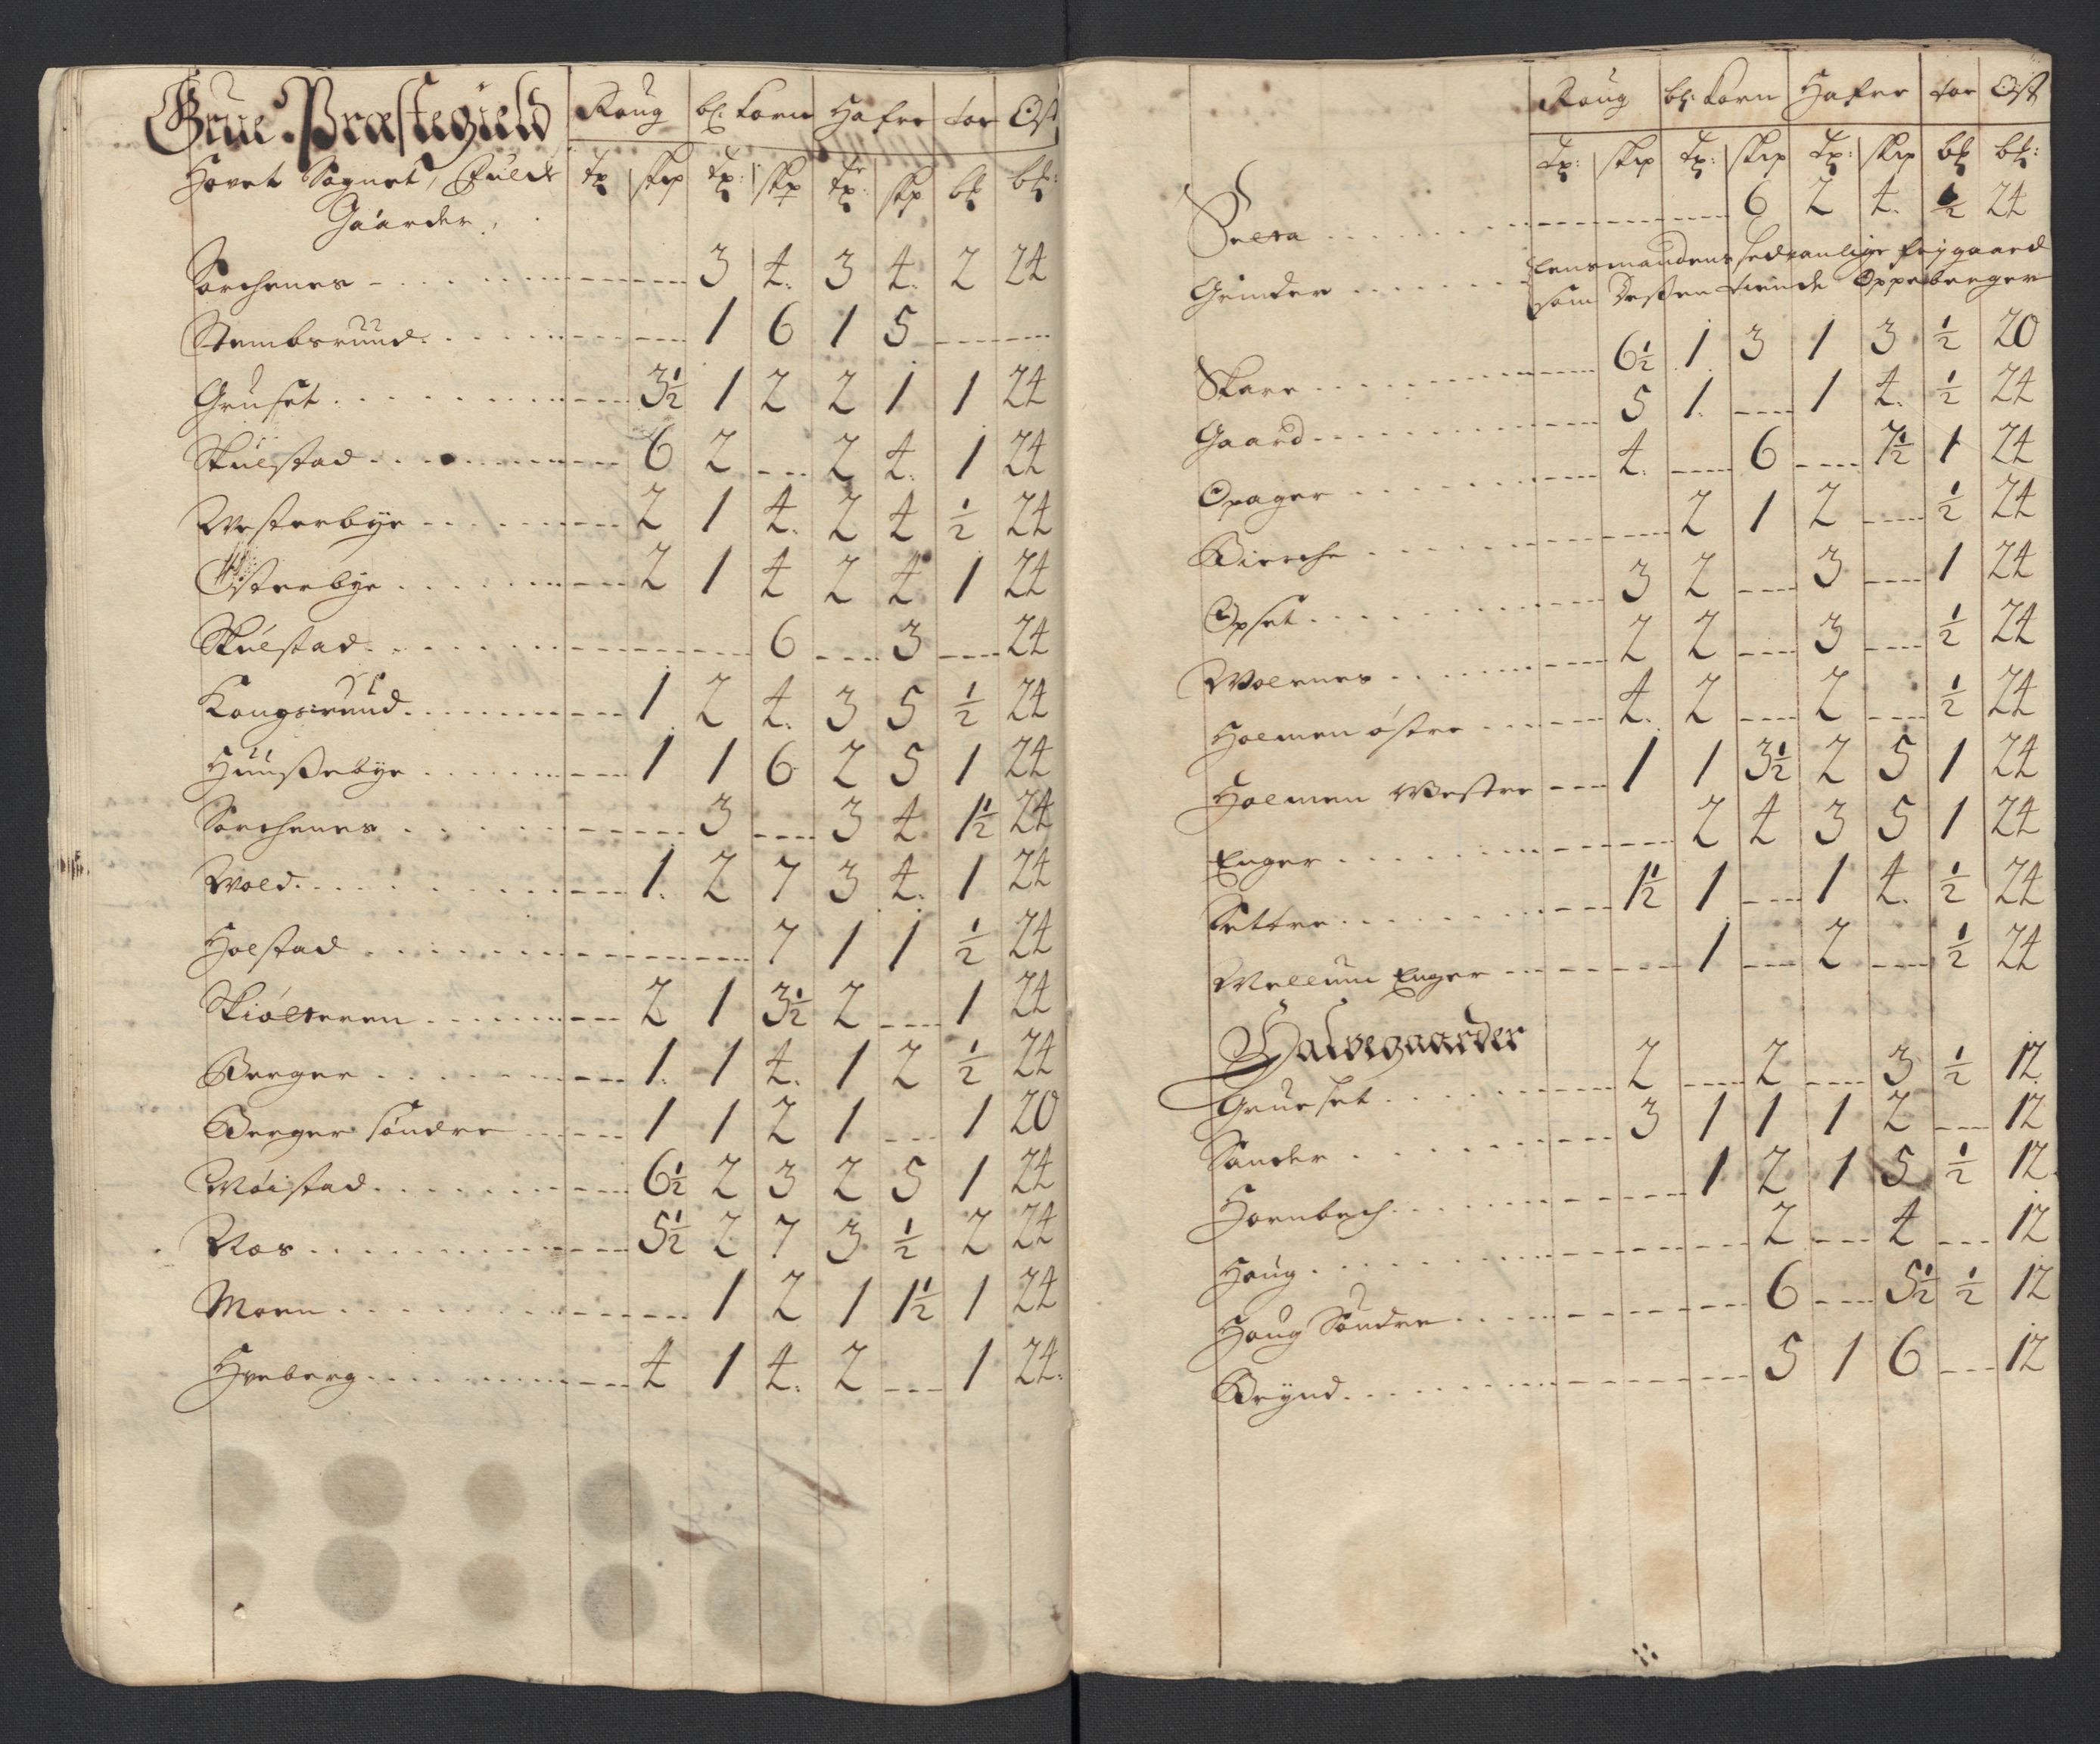 Grue Præstegield
Roug bl: korn Hafre tor Ost
Hovet Sognet, Fulde tp skp tp: skp tp: skp b℔ b℔:
Gaarder,
Sorchenes 3 4 3 4 2 24
Stembsruud 1 6 1 5
Gruset 3½ 1 2 2 1 1 24
Skulstad 6 2 2 4 1 24
Westerbye 2 1 4 2 4 ½ 24
Østerbye 2 1 4 2 4 1 24
Skulstad 6 3 24
Kongsruud 1 2 4 3 5 ½ 24
Huusebye 1 1 6 2 5 1 24
Sorchenes 3 3 4 1½ 24
Wold 1 2 7 3 4 1 24
Holstad 7 1 1 ½ 24
Skiølteren 2 1 3½ 2 1 24
Berger 1 1 4 1 2 ½ 24
Berger søndre 1 1 2 1 1 20
Møistad 6½ 2 3 2 5 1 24
Nos 5½ 2 7 3 ½ 2 24
Moen 1 2 1 1½ 1 24
Hveberg 4 1 4 2 1 24
Roug bl: korn Hafre tor Ost
tp: skp tp: skp tp: skp b℔ b℔:
6 2 4 ½ 24
Grinder Lensmandens sedvanlige frigaard
som desen tiende oppebærger
Skare 6½ 1 3 1 3 ½ 20
Gaard 5 1 1 4 ½ 24
Opager 4 6 7½ 1 24
Bierche 2 1 2 ½ 24
Opset 3 2 3 1 24
Wolenes 2 2 3 ½ 24
Holmen østre 4 2 2 ½ 24
Holmen Westre 1 1 3½ 2 5 1 24
Enger 2 4 3 5 1 24
Settre 1½ 1 1 4 ½ 24
Mellum Enger 1 2 ½ 24
Halvegaarder
Grueset 2 2 3 ½ 12
Sander 3 1 1 1 2 12
Hornbech 1 2 1 5 ½ 12
Houg 2 4 12
Houg Søndre 6 5½ ½ 12
Brynd 5 1 6 12